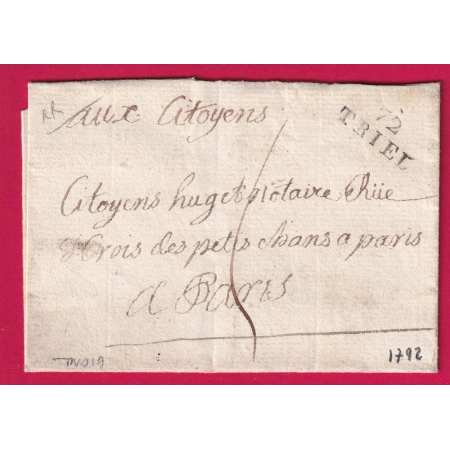 RR
aux Citoyens
72
TRIEL
Citoyens huget Notaire Rüe
Crois des petis chans a paris
a Paris
1792